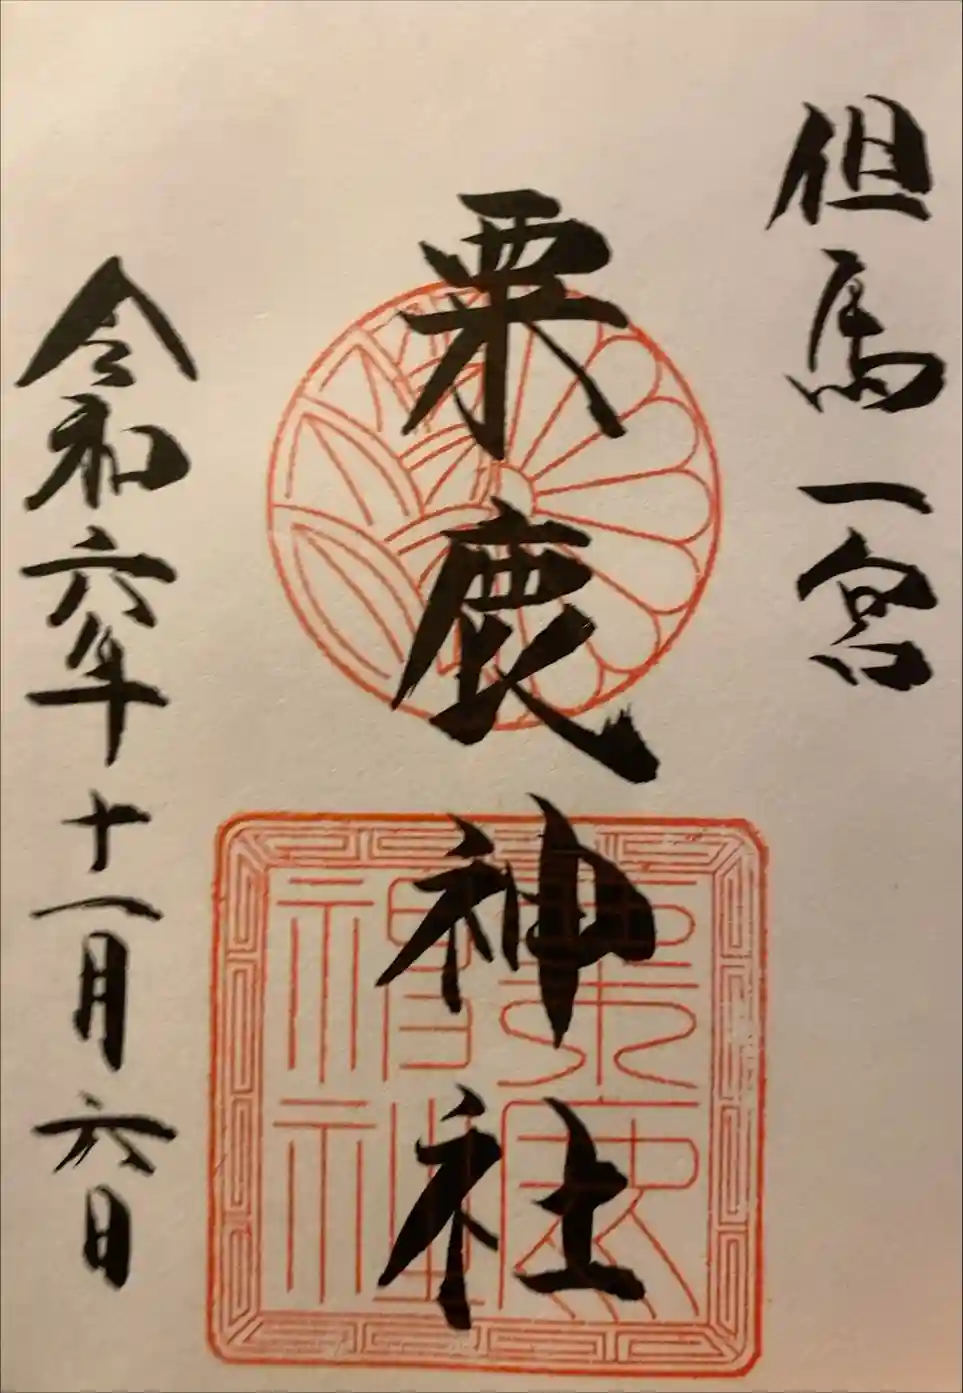 但馬一宮
粟鹿神社
令和六年十一月六日
粟鹿神社